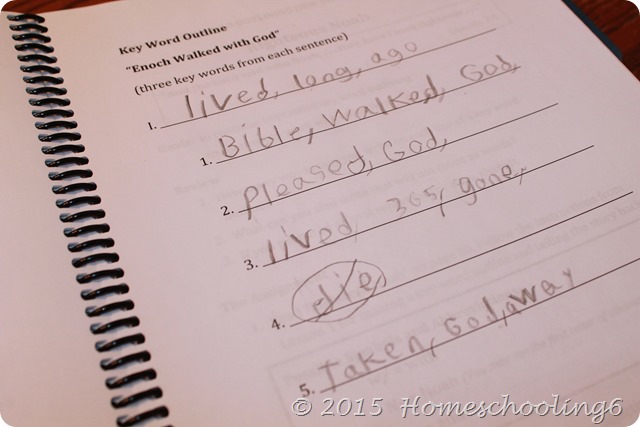 Key Word Outline
"Enoch Walked with God"
(three key words from each sentence)
I. lived, long, ago
1. Bible, Walked, God,
2. pleased, God,
3. lived, 365, gone,
4. die
5. Taken, God, away
© 2015 Homeschooling6